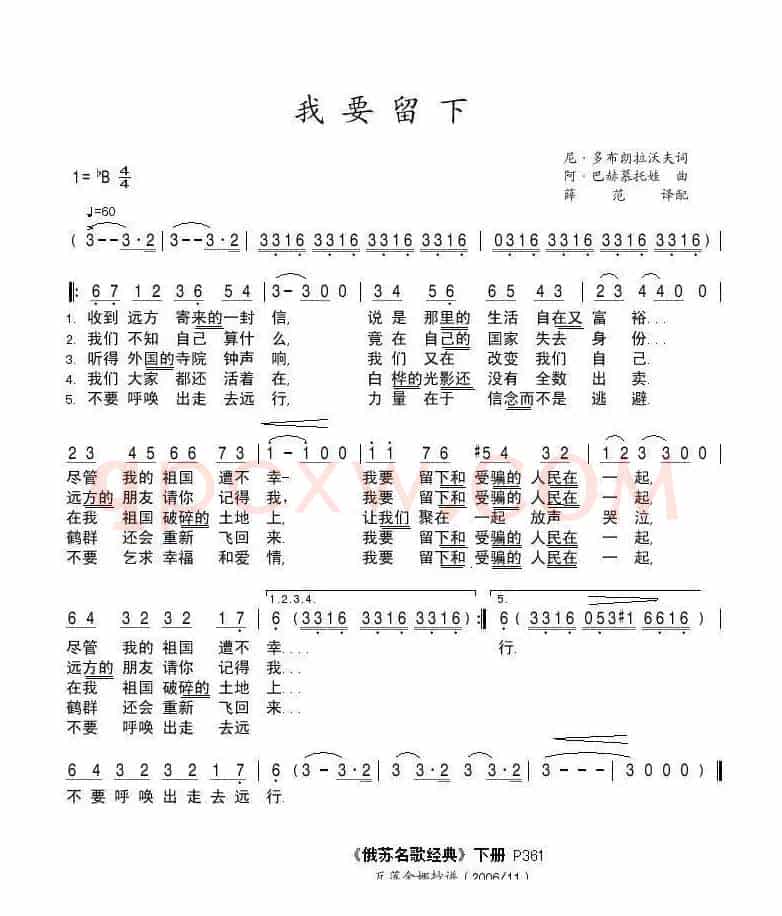 我要留下
尼·多布朗拉沃夫词
1=♭B 4/4
阿·巴赫慕托娃 曲
薛 范 译配
♩=60
( 3--3·2 | 3--3·2 | 3316 3316 3316 3316 | 0316 3316 3316 3316 ) |
‖: 67 12 36 54 | 3-300 | 34 56 65 43 | 23 4400 |
1. 收到 远方 寄来的一封 信, 说是 那里的 生活 自在又 富 裕...
2. 我们 不知 自己 算什 么, 竟在 自己的 国家 失去 身 份...
3. 听得 外国的寺院 钟声 响, 我们 又在 改变 我们 自 己.
4. 我们 大家 都还 活着 在, 白桦的光影还 没有 全数 出 卖.
5. 不要 呼唤 出走 去远 行, 力量 在于 信念而不是 逃 避.
23 45 66 73 | 1-100 | 11 76 #54 32 | 12 3300 |
尽管 我的 祖国 遭不 幸- 我要 留下和 受骗的 人民在 一 起,
远方的 朋友 请你 记得 我, 我要 留下和 受骗的 人民在 一 起,
在我 祖国 破碎的 土地 上, 让我们 聚在 一起 放声 哭 泣,
鹤群 还会 重新 飞回 来. 我要 留下和 受骗的 人民在 一 起,
不要 乞求 幸福 和爱 情, 我要 留下和 受骗的 人民在 一 起,
1.2.3.4. 5.
64 32 32 17 | 6 (3316 3316 3316) :‖ 6 (3316 053#1 6616) |
尽管 我的 祖国 遭不 幸.... 行.
远方的 朋友 请你 记得 我...
在我 祖国 破碎的 土地 上...
鹤群 还会 重新 飞回 来...
不要 呼唤 出走 去远
64 32 32 17 | 6 (3-3·2 | 3 3·2 3 3·2 | 3--- | 3000) ‖
不要呼唤出走去远 行.
《俄苏名歌经典》下册 P361
(2006/11)
qpcxw.COM